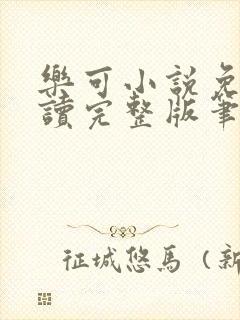 樂可小説免
讀完整版筆
征城悠馬（新